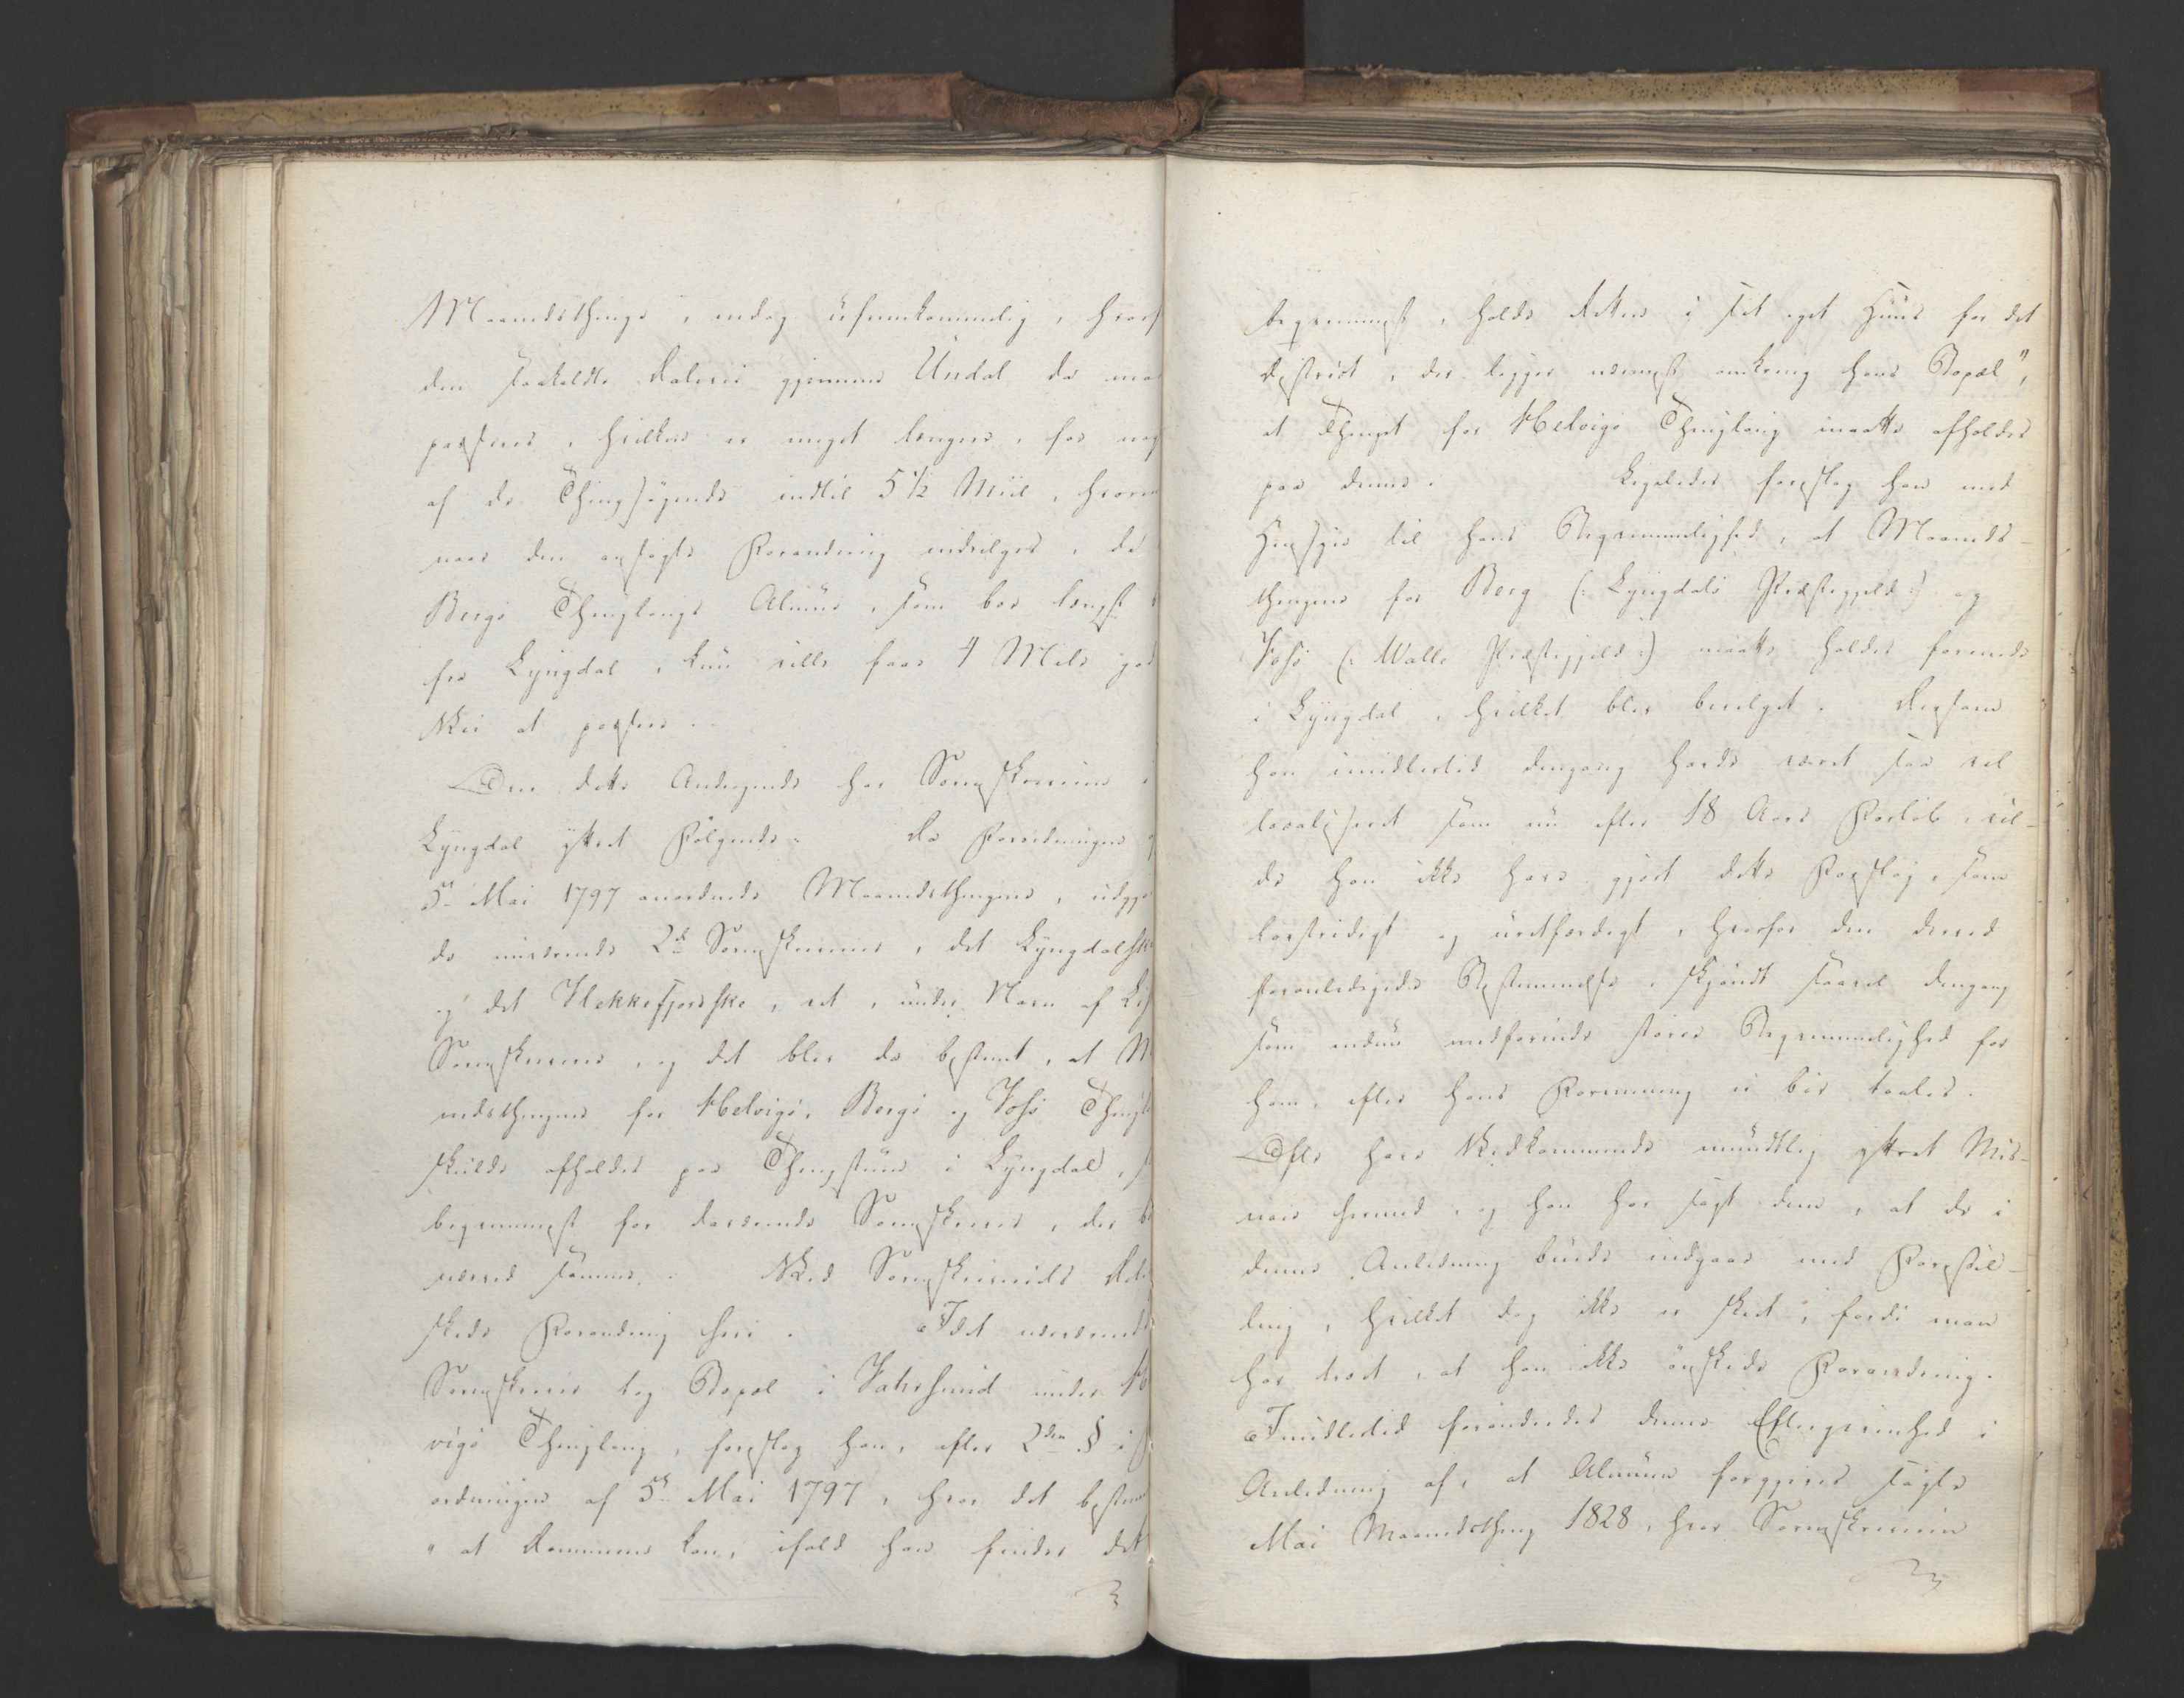 Maanedsthinge, endog ufremkommelig, hvorf
den saakaldte Dalevei gjennem Undal da maa
passeres, hvilken er meget længere, for nog
af de Thingsøgende indtil 5 1/2 Miil, hvorim
naar den ansøgte Forandring indvilges, da
Bergs Thinglaugs Almue, som boe længst
fra Lyngdal, kun ville faae 4 Miils god
Vei at passere.
Om dette Andragende har Sorenskriveren i
Lyngdal yttret Følgende: Da Forordningen
5te Mai 1797 anordnede Maanedsthingene, udgjo
de nuværende 2de Sorenskriverier, det Lyngdalske
og det Flekkefjordske, eet, under Navn af Li
Sorenskriverie, og det blev da bestemt, at M
nedsthingene for Helvigs, Bergs og Foss Thingl
skulde afholdes paa Thingstuen i Lyngdal, s
beqvemmest for daværende Sorenskriver, der b
nærved samme. Ved Sorenskriveriets Dele
skede Forandring heri. Idet nærværende
Sorenskriver tog Bopæl i Vatsheurd under Hel
vigs Thinglaug, foreslog han, efter 2den § i F
ordningen af 5te Mai 1797, hvor det bestem
"at Dommeren kan, ifald han finder det
beqvemmest, holde Retten i sit eget Huus for det
District, der ligger nærmest omkring hans Bopæl",
at Thinget for Helvigs Thinglaug maatte afholdes
paa denne. Ligeledes foreslog han med
Hensyn til hans Beqvemmelighed, at Maaneds-
thingene for Berg (: Lyngdals Præstegjeld :) og
Foss (: Valle Præstegjeld :) maatte holdes forenede
i Lyngdal, hvilket blev bevilget. Dersom
han imidlertid dengang havde været saa vel
localiseret som nu efter 18 Aars Forløb, vil-
de han ikke have gjort dette Forslag, som
lovstridigt og uretfærdigt, hvorfor den derved
foranledigede Bestemmelse, skjøndt saavel dengang
som endnu medførende større Beqvemmelighed for
ham, efter hans Formening ei bør taales.
Ofte have Vedkommende mundtlig yttret Mis-
nøie herved, og han har sagt dem, at de i
denne Anledning burde indgaae med Forestil-
ling, hvilket dog ikke er skeet, fordi man
har troet, at han ikke ønskede Forandring.
Imidlertid forandredes denne Eftergivenhed i
Anledning af, at Almuen forgjeves søgte
Mai Maanedsthing 1828, hvor Sorenskriveren